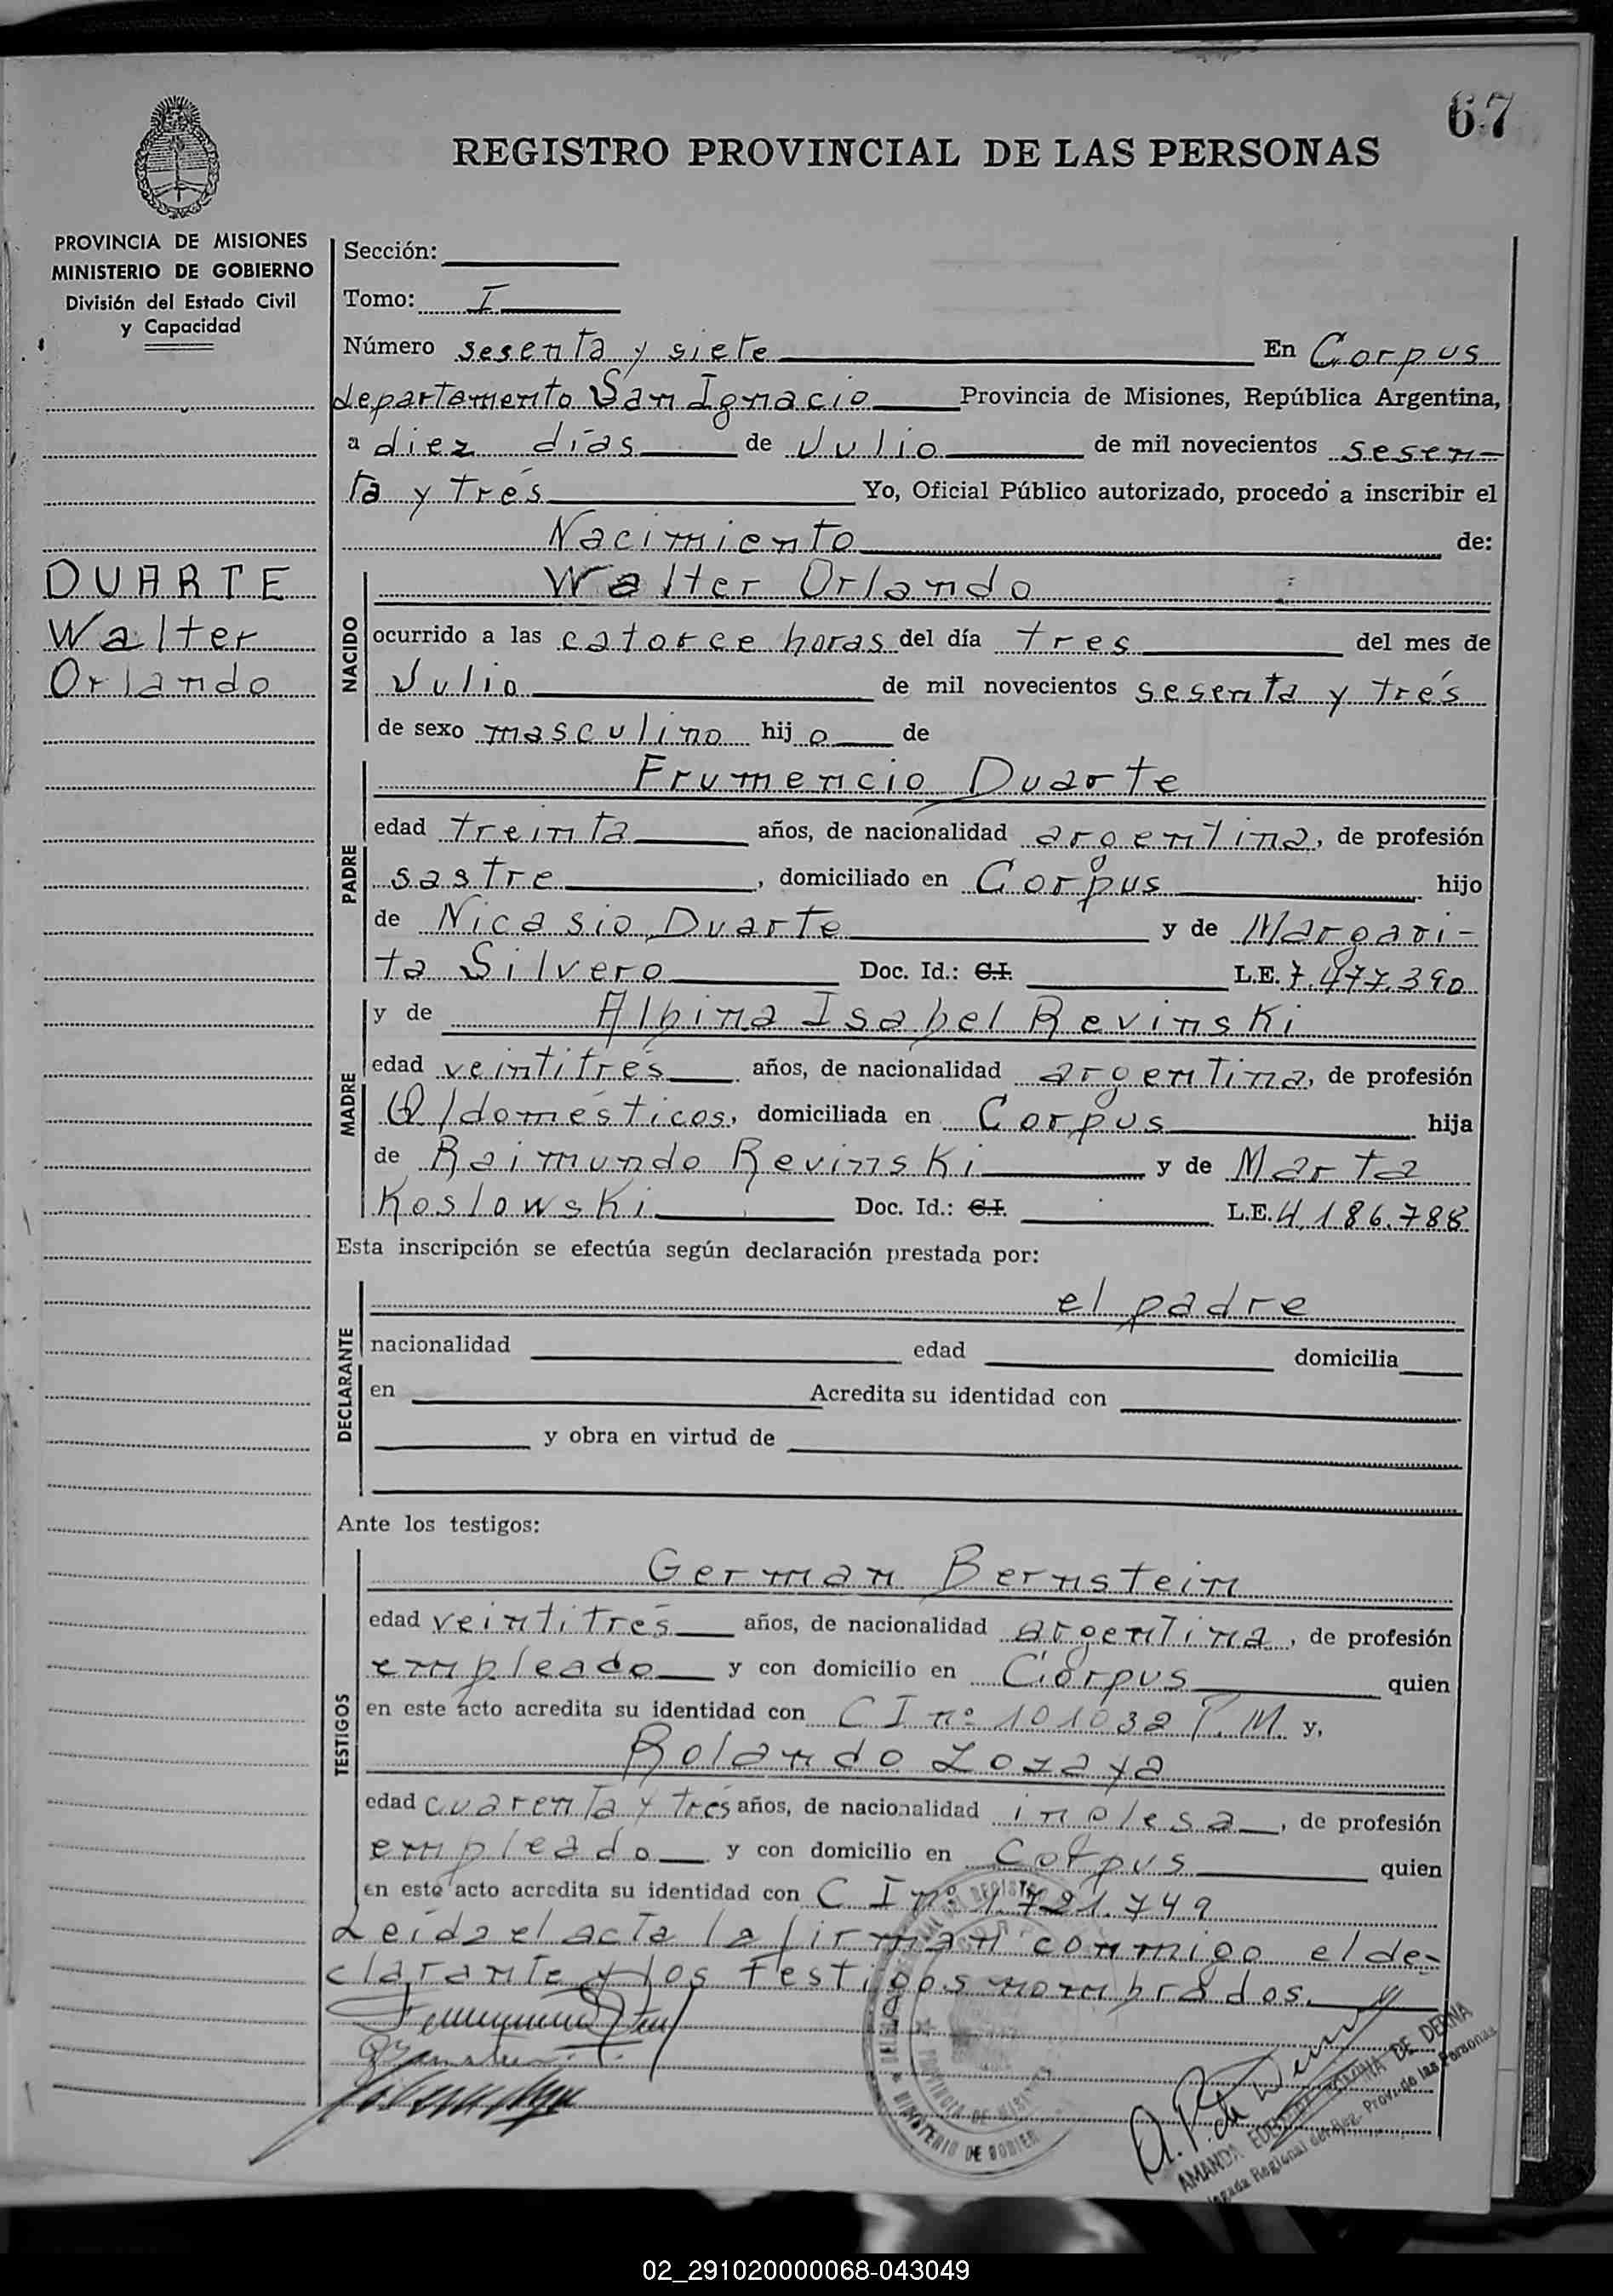 67
REGISTRO PROVINCIAL DE LAS PERSONAS
PROVINCIA DE MISIONES
MINISTERIO DE GOBIERNO
División del Estado Civil
y Capacidad
DUARTE
Walter
Orlando
Sección:
Tomo: I
Número sesenta y siete En Corpus
departamento San Ignacio Provincia de Misiones, República Argentina,
a diez días de Julio de mil novecientos sesen-
ta y tres Yo, Oficial Público autorizado, procedo a inscribir el
Nacimiento de:
NACIDO
Walter Orlando
ocurrido a las catorce horas del día tres del mes de
Julio de mil novecientos sesenta y trés
de sexo masculino hijo de
PADRE
Frumencio Duarte
edad treinta años, de nacionalidad argentina, de profesión
sastre, domiciliado en Corpus hijo
de Nicasio Duarte y de Margari-
ta Silvero Doc. Id.: C.I. L.E. 7.477.390
MADRE
y de Albina Isabel Revinski
edad veintitrés años, de nacionalidad argentina, de profesión
Q/domésticos, domiciliada en Corpus hija
de Raimundo Revinski y de Marta
Koslowski Doc. Id.: C.I. L.E. 4.186.788
Esta inscripción se efectúa según declaración prestada por:
DECLARANTE
el padre
nacionalidad edad domicilia
en Acredita su identidad con
y obra en virtud de
Ante los testigos:
TESTIGOS
German Bernstein
edad veintitrés años, de nacionalidad argentina, de profesión
empleado y con domicilio en Corpus quien
en este acto acredita su identidad con C I nº 101032 P.M. y,
Rolando Lozaya
edad cuarenta y tres años, de nacionalidad inglesa, de profesión
empleado y con domicilio en Corpus quien
en este acto acredita su identidad con C I nº 1.721.749
Leída el acta la firman conmigo el de-
clarante y los testigos nombrados.
PROVINCIA DE MISIONES
MINISTERIO DE GOBIER
AMANDA DE DERNA
Regional del Reg. Prov. de las Personas
02_291020000068-043049